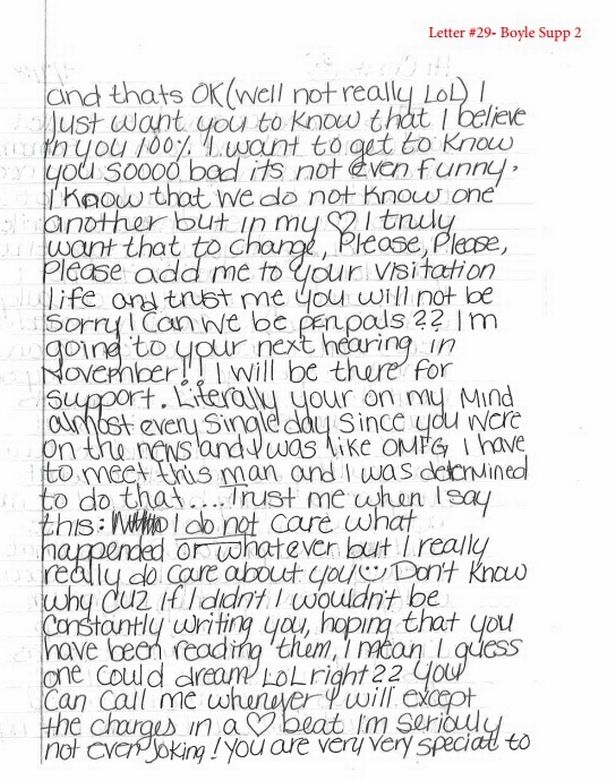 Letter #29- Boyle Supp 2
and thats OK (well not really LOL) I
Just want you to know that I believe
in you 100%. I want to get to know
you soooo bad its not even funny.
I know that we do not know one
another but in my ♡ I truly
want that to change, Please, Please,
Please add me to your visitation
life and trust me you will not be
sorry! Can we be penpals ?? Im
going to your next hearing in
November!! I will be there for
support. Literally your on my mind
almost every single day since you were
on the news and I was like OMFG I have
to meet this man and I was determined
to do that.... Trust me when I say
this: I do not care what
happended or whatever but I really
really do care about you☺ Don't know
why CUZ if I didn't I wouldn't be
constantly writing you, hoping that you
have been reading them, I mean I guess
one could dream LOL right?? You
can call me whenever I will except
the charges in a ♡ beat Im seriously
not even joking! You are very very special to